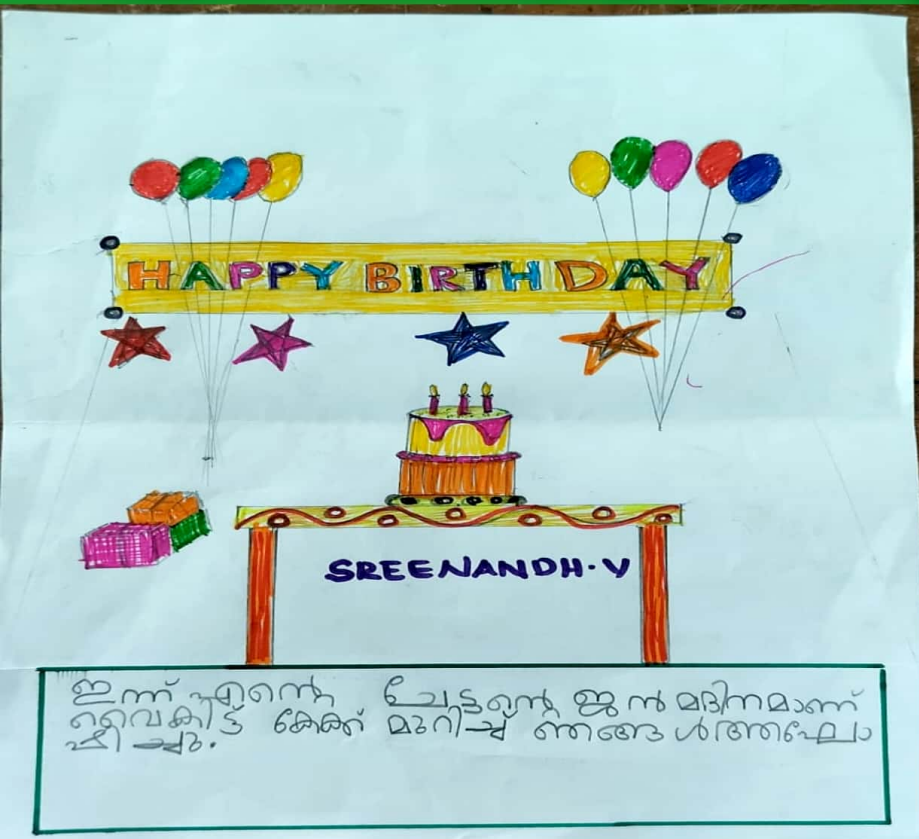 HAPPY BIRTHDAY
SREENANDH.V
ഇന്ന് എന്റെ ചേട്ടന്റെ ജന്മദിനമാണ്
വൈകിട്ട് കേക്ക് മുറിച്ച് ഞങ്ങൾആഘോ
ഷിച്ചു.